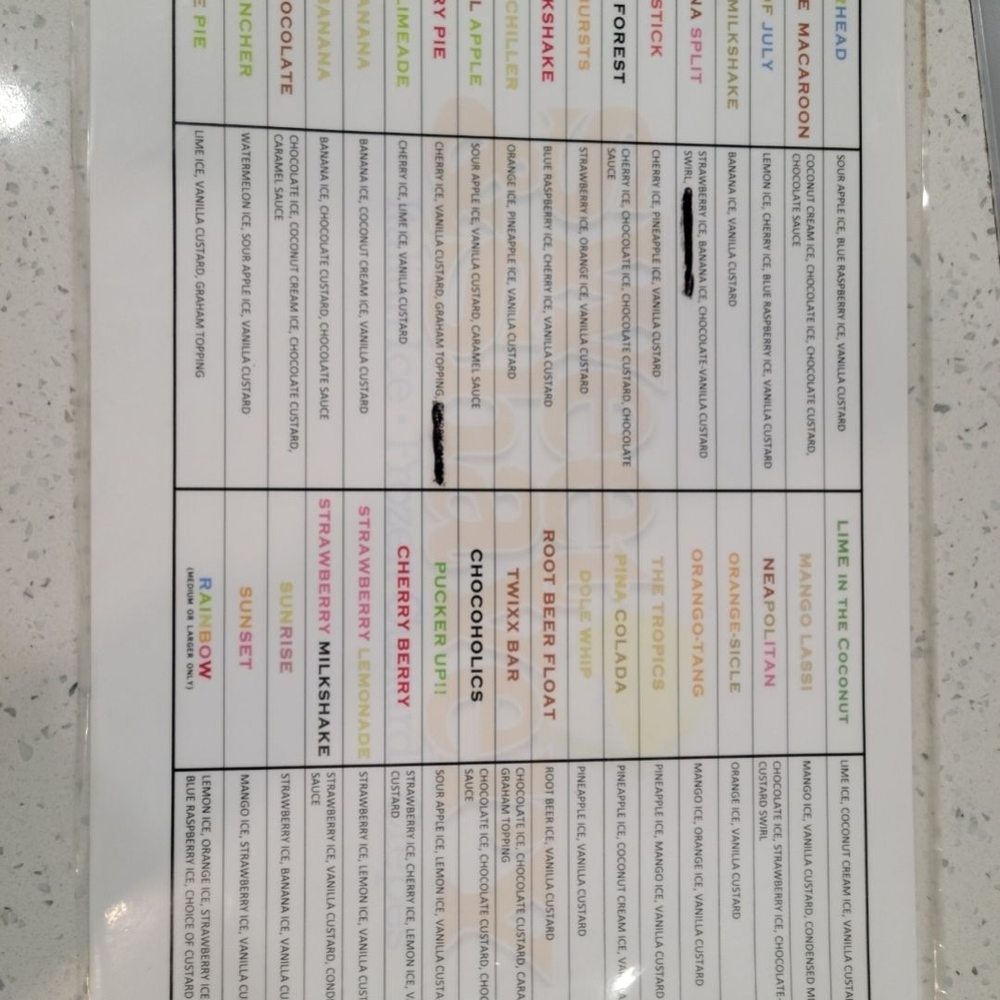 RHEAD
SOUR APPLE ICE, BLUE RASPBERRY ICE, VANILLA CUSTARD
LIME IN THE COCONUT
LIME ICE, COCONUT CREAM ICE, VANILLA CUSTA
E MACAROON
COCONUT CREAM ICE, CHOCOLATE ICE, CHOCOLATE CUSTARD,
CHOCOLATE SAUCE
MANGO LASSI
MANGO ICE, VANILLA CUSTARD, CONDENSED MI
OF JULY
LEMON ICE, CHERRY ICE, BLUE RASPBERRY ICE, VANILLA CUSTARD
NEAPOLITAN
CHOCOLATE ICE, STRAWBERRY ICE, CHOCOLATE-
CUSTARD SWIRL
MILKSHAKE
BANANA ICE, VANILLA CUSTARD
ORANGE-SICLE
ORANGE ICE, VANILLA CUSTARD
NA SPLIT
STRAWBERRY ICE, BANANA ICE, CHOCOLATE-VANILLA CUSTARD
SWIRL,
ORANGO-TANG
MANGO ICE, ORANGE ICE, VANILLA CUSTARD
STICK
CHERRY ICE, PINEAPPLE ICE, VANILLA CUSTARD
THE TROPICS
PINEAPPLE ICE, MANGO ICE, VANILLA CUSTARD
FOREST
CHERRY ICE, CHOCOLATE ICE, CHOCOLATE CUSTARD, CHOCOLATE
SAUCE
PINA COLADA
PINEAPPLE ICE, COCONUT CREAM ICE, VA
BURSTS
STRAWBERRY ICE, ORANGE ICE, VANILLA CUSTARD
DOLE WHIP
PINEAPPLE ICE, VANILLA CUSTARD
KSHAKE
BLUE RASPBERRY ICE, CHERRY ICE, VANILLA CUSTARD
ROOT BEER FLOAT
ROOT BEER ICE, VANILLA CUSTARD
CHILLER
ORANGE ICE, PINEAPPLE ICE, VANILLA CUSTARD
TWIXX BAR
CHOCOLATE ICE, CHOCOLATE CUSTARD, CARA
GRAHAM TOPPING
L APPLE
SOUR APPLE ICE, VANILLA CUSTARD, CARAMEL SAUCE
CHOCOHOLICS
CHOCOLATE ICE, CHOCOLATE CUSTARD, CHOC
SAUCE
RY PIE
CHERRY ICE, VANILLA CUSTARD, GRAHAM TOPPING,
PUCKER UP!!
SOUR APPLE ICE, LEMON ICE, VANILLA CUSTA
LIMEADE
CHERRY ICE, LIME ICE, VANILLA CUSTARD
CHERRY BERRY
STRAWBERRY ICE, CHERRY ICE, LEMON ICE, V
CUSTARD
ANANA
BANANA ICE, COCONUT CREAM ICE, VANILLA CUSTARD
STRAWBERRY LEMONADE
STRAWBERRY ICE, LEMON ICE, VANILLA CUST
BANANA
BANANA ICE, CHOCOLATE CUSTARD, CHOCOLATE SAUCE
STRAWBERRY MILKSHAKE
STRAWBERRY ICE, VANILLA CUSTARD, COND
SAUCE
OCOLATE
CHOCOLATE ICE, COCONUT CREAM ICE, CHOCOLATE CUSTARD,
CARAMEL SAUCE
SUNRISE
STRAWBERRY ICE, BANANA ICE, VANILLA CU
NCHER
WATERMELON ICE, SOUR APPLE ICE, VANILLA CUSTARD
SUNSET
MANGO ICE, STRAWBERRY ICE, VANILLA CU
E PIE
LIME ICE, VANILLA CUSTARD, GRAHAM TOPPING
RAINBOW
(MEDIUM OR LARGER ONLY)
LEMON ICE, ORANGE ICE, STRAWBERRY ICE
BLUE RASPBERRY ICE, CHOICE OF CUSTARD